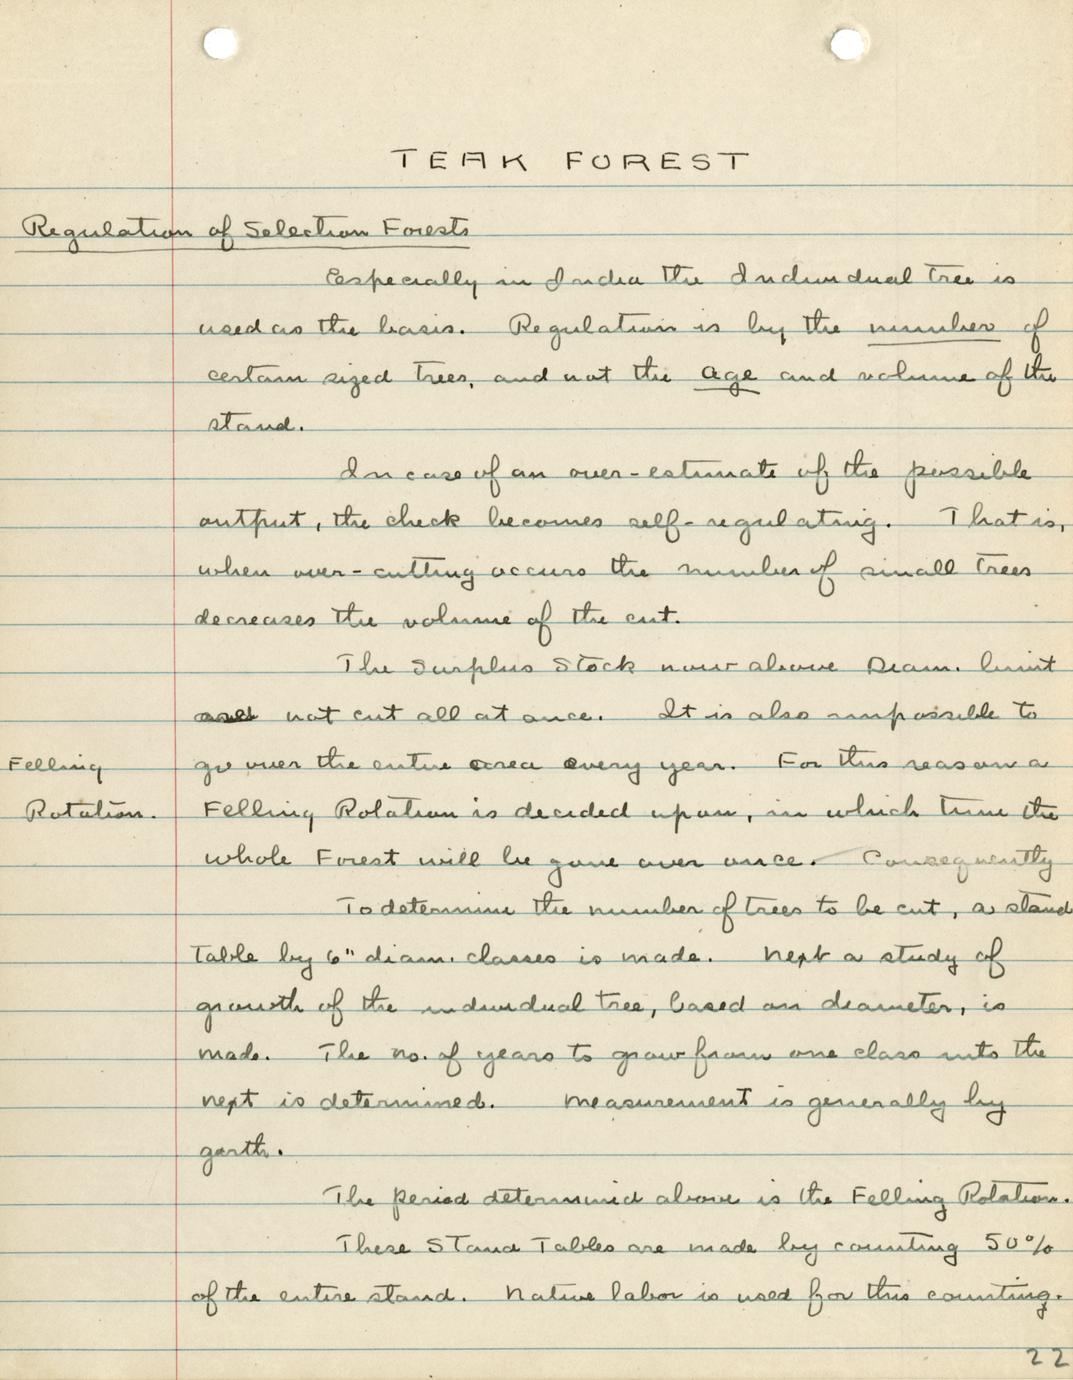 TEAK FOREST
Regulation of Selection Forests
Especially in India the Individual tree is
used as the basis. Regulation is by the number of
certain sized trees, and not the age and volume of the
stand.
In case of an over-estimate of the possible
output, the check becomes self-regulating. That is,
when over-cutting occurs the number of small trees
decreases the volume of the cut.
The Surplus Stock now above Diam. limit
not cut all at once. It is also impossible to
Felling go over the entire area every year. For this reason a
Rotation. Felling Rotation is decided upon, in which time the
whole Forest will be gone over once. Consequently
To determine the number of trees to be cut, a stand
table by 6" diam. classes is made. Next a study of
growth of the individual tree, based on diameter, is
made. The no. of years to grow from one class into the
next is determined. Measurement is generally by
garth.
The period determined above is the Felling Rotation.
These Stand Tables are made by counting 50%
of the entire stand. Native labor is used for this counting.
22